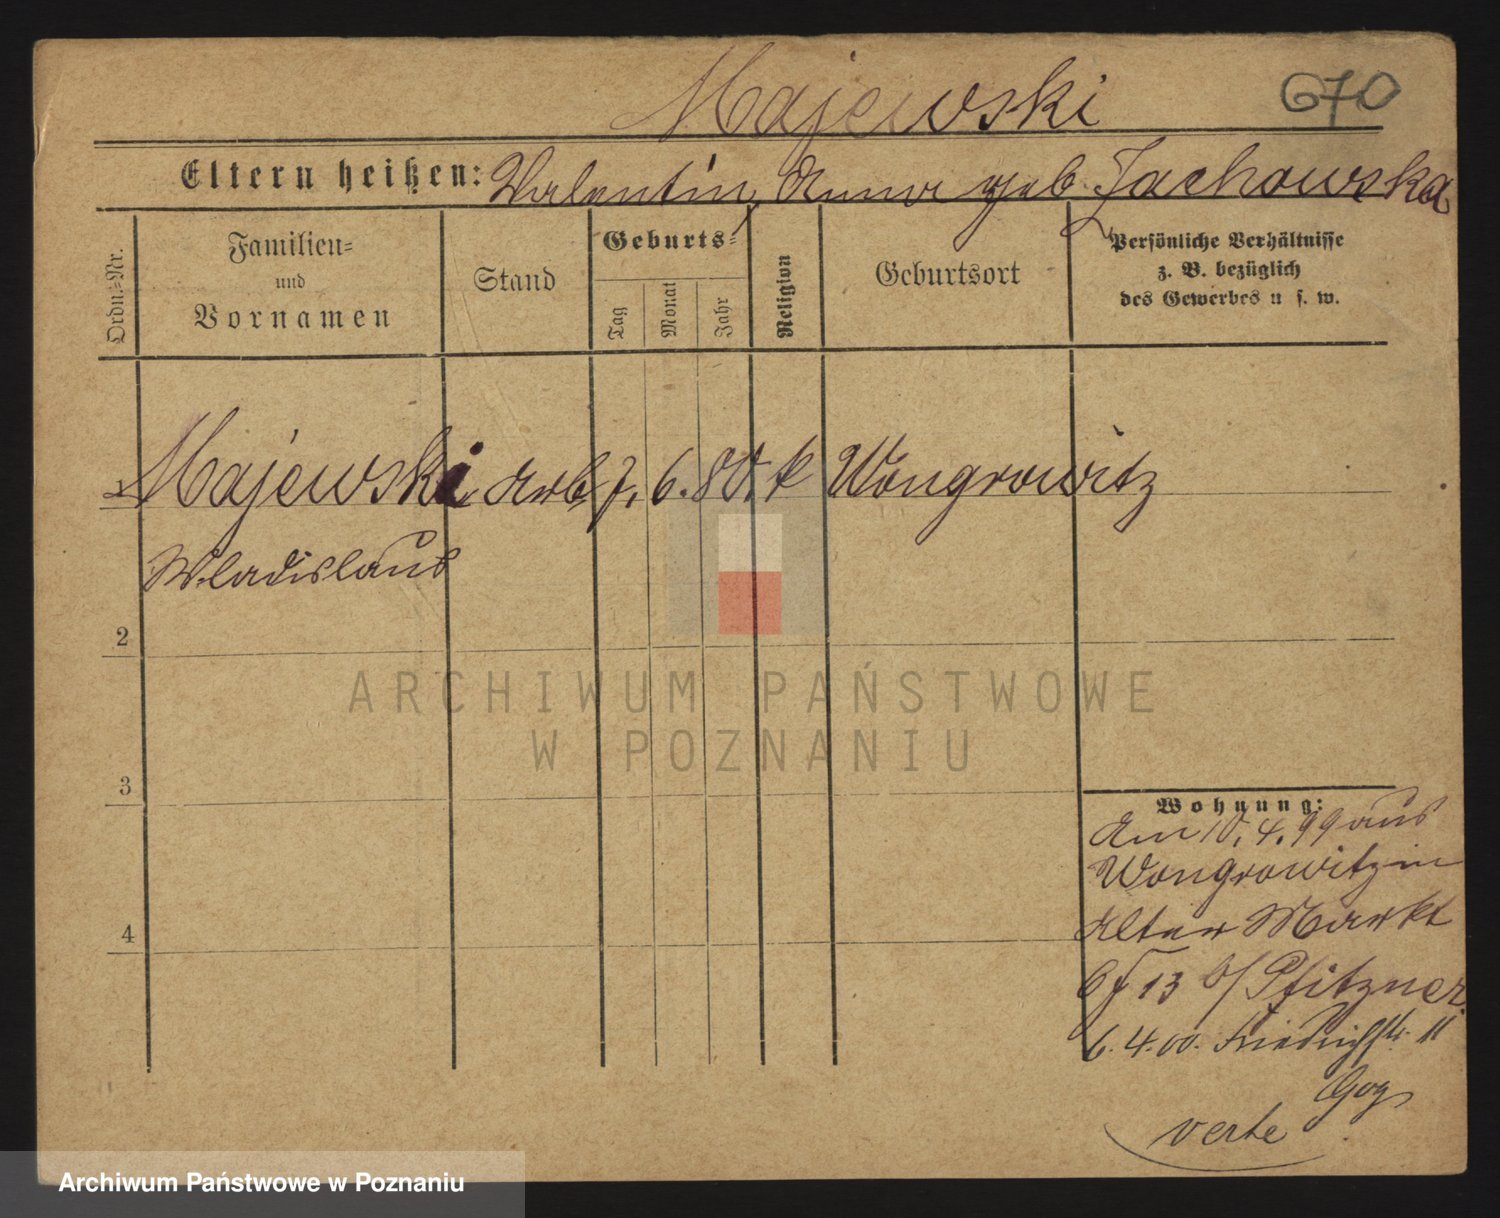 Majewski 670
Eltern heißen: Valentin, Anna geb. Zachowska
Ordn.-Nr.
Familien-
und
Vornamen
Stand
Geburts-
Tag
Monat
Jahr
Religion
Geburtsort
Persönliche Verhältnisse
z. B. bezüglich
des Gewerbes u. s. w.
1 Majewski Arb. 7. 6. 80. k Wongrowitz
Wladislaus
2
3
4
Wohnung:
Am 10.4.99 aus
Wongrowitz in
Alter Markt
13 b/ Pfitzner.
6.4.00. Friedrichstr. 11
verte
ARCHIWUM PAŃSTWOWE
W POZNANIU
Archiwum Państwowe w Poznaniu